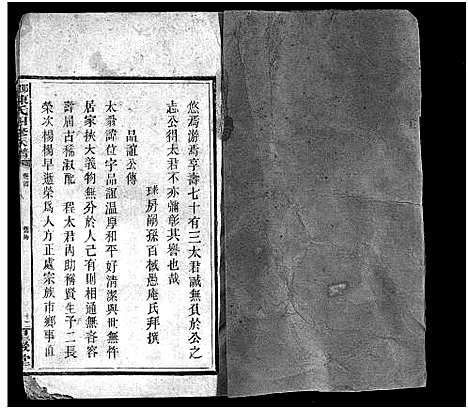 悠焉游焉享壽七十有三太君誠無負於公之
志公得太君不亦彌彰其譽也哉
珠房嗣孫百械愚庵氏拜撰
品誼公傳
太翁諱位字品誼溫厚和平好清潔與世無忤
居家挾大義物無分於人己有則相通無吝容
壽屆古稀淑配程太君內助稱賢生子二長
榮次楊楊早逝榮爲人方正處宗族市鄉事直
陳氏四修宗譜